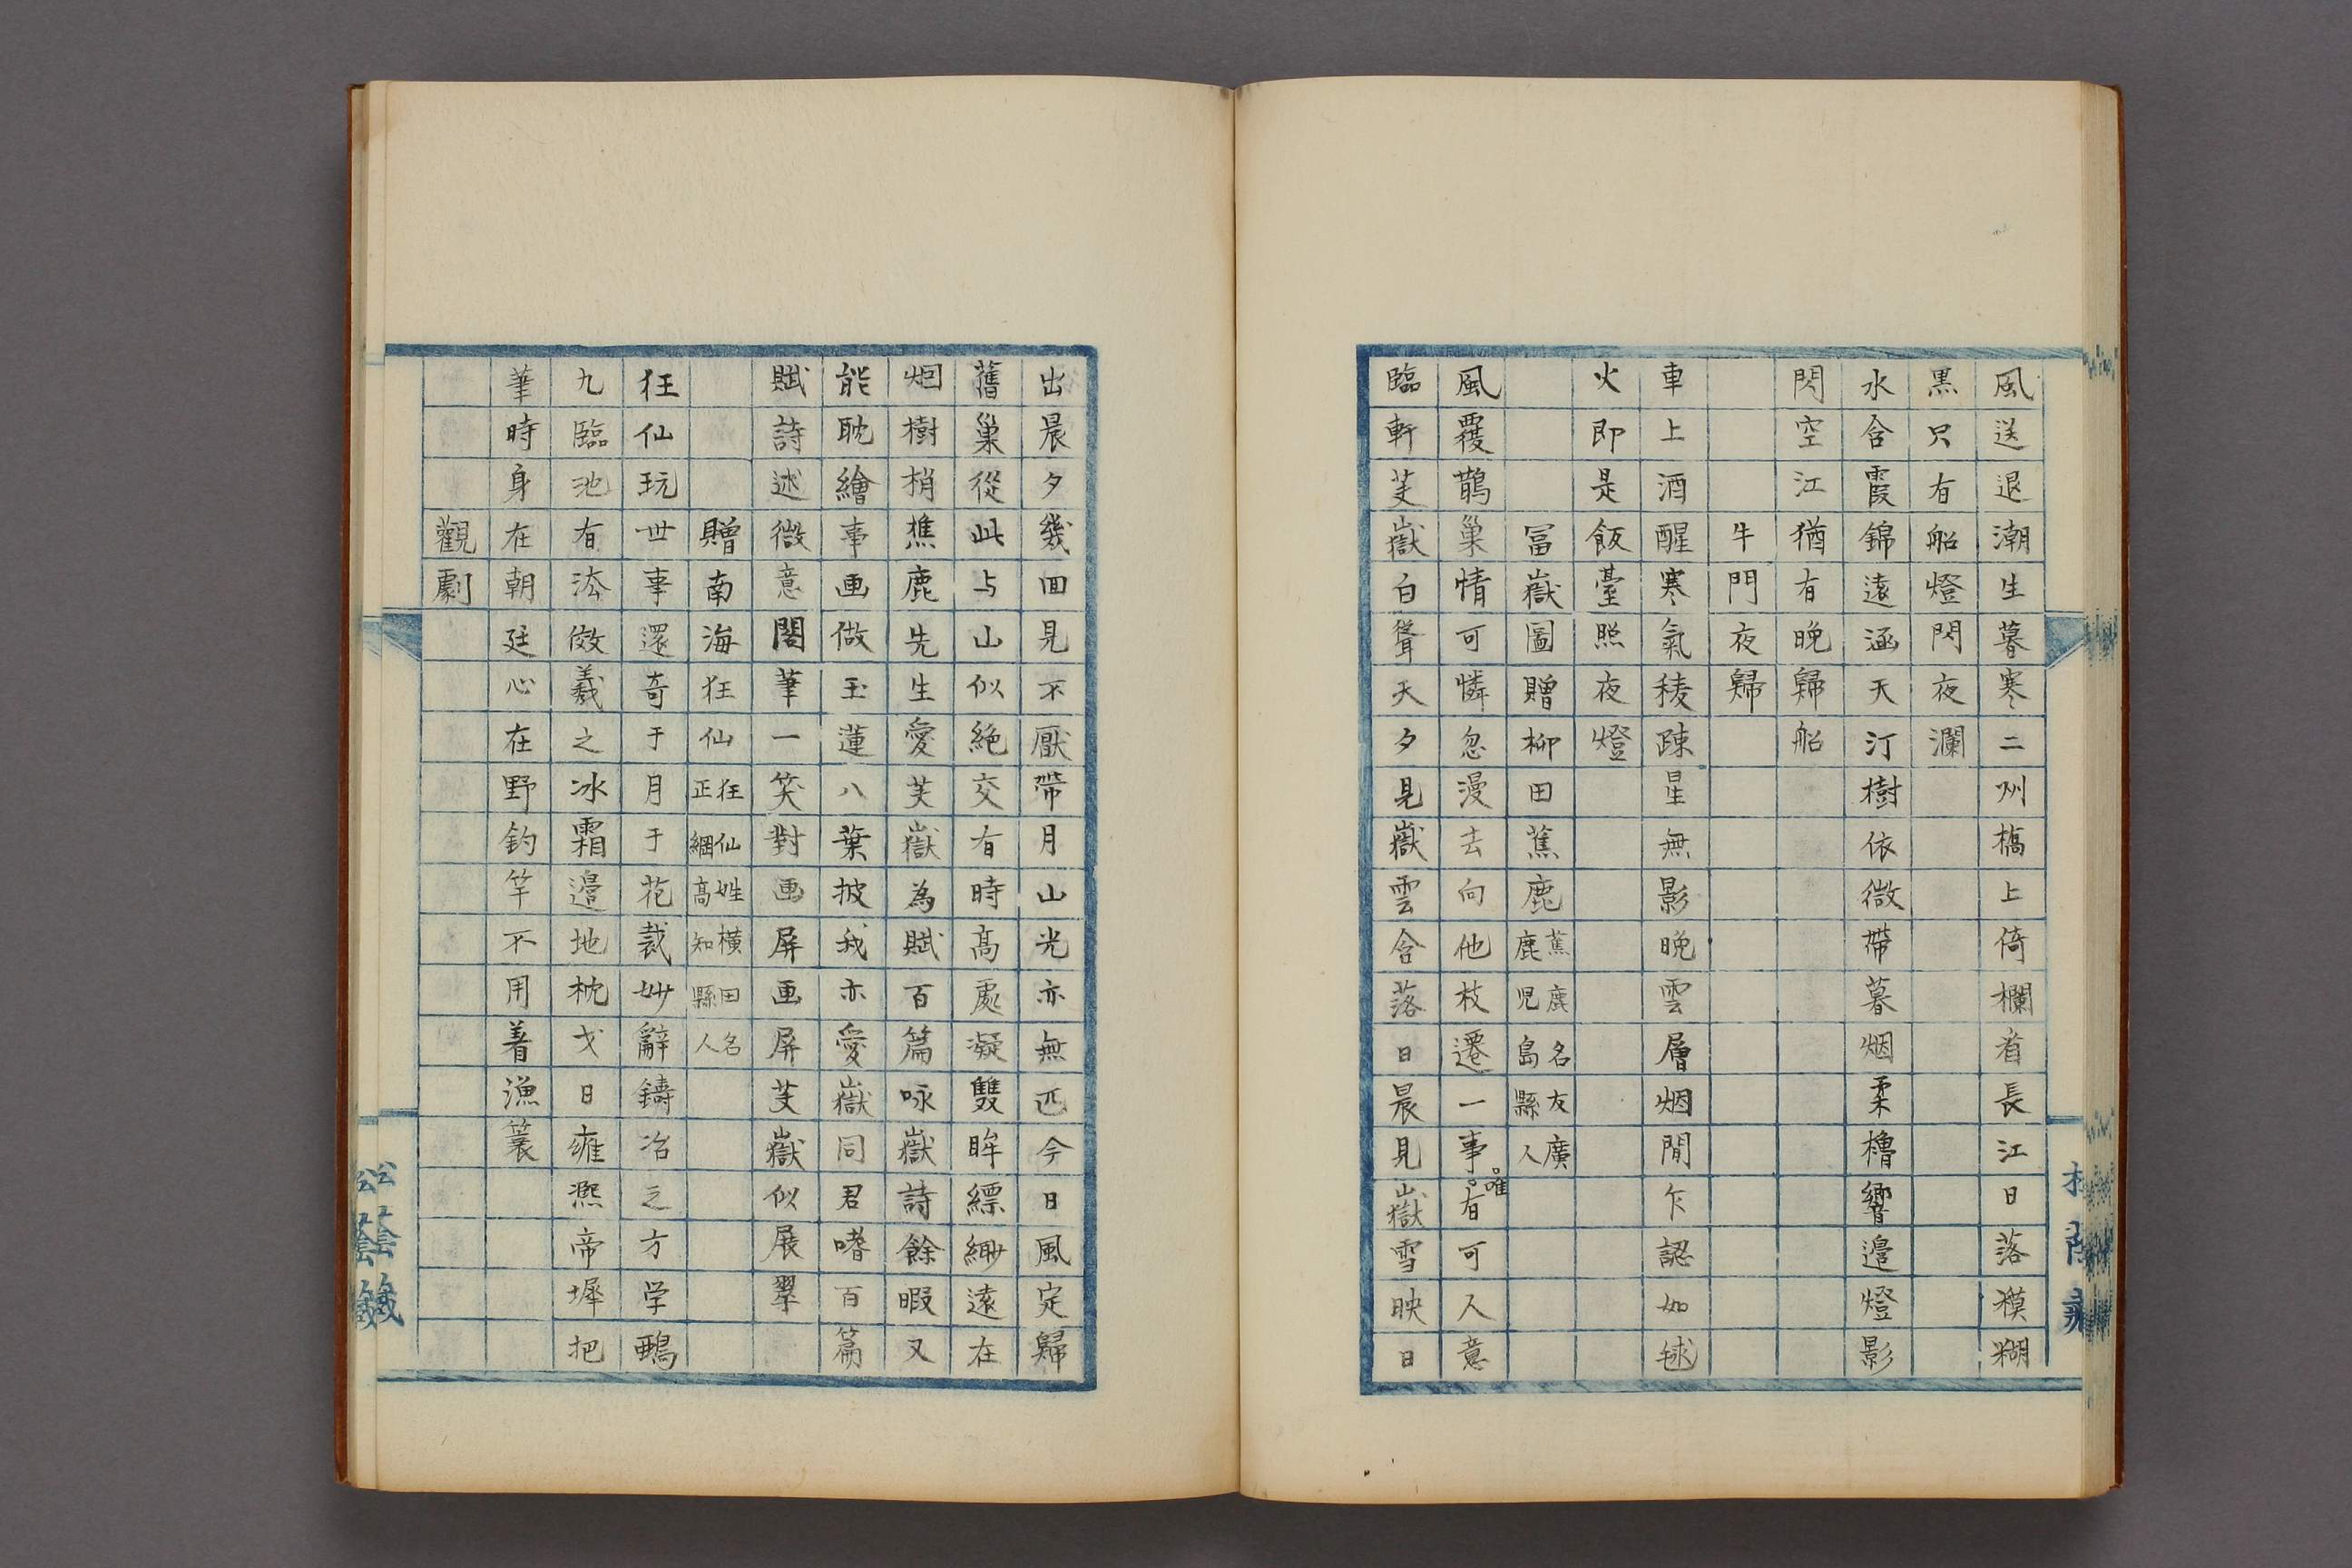 風送退潮生暮寒二州橋上倚欄看長江日落獏糊
黒只有船燈閃夜瀾
水含霞錦遠涵天汀樹依微帶暮烟柔櫓響邉燈影
閃空江猶有晩歸船
牛門夜歸
車上酒醒寒氣稜踈星無影晩雲層烟間乍認如毬
火即是飯臺照夜燈
冨嶽圖贈柳田蕉鹿蕉鹿名友廣鹿児島縣人
風覆鵲巢情可憐忽漫去向他枝遷一事唯有可人意
臨軒芙嶽白聳天夕見嶽雲含落日晨見嶽雪映日
出晨夕幾回見不厭帶月山光亦無匹今日風定歸
舊巢從此与山似絶交有時髙處凝雙眸縹緲遠在
烟樹梢樵鹿先生愛芙嶽為賦百篇咏嶽詩餘暇又
能耽繪事画做玉蓮八葉披我亦愛嶽同君嗜百篇
賦詩述微意閣筆一笑對画屏画屏芙嶽似展翠
贈南海狂仙狂仙姓横田名正綱髙知縣人
狂仙玩世事還奇于月于花裁妙辭鑄冶之方学鵶
九臨池有㳒傚羲之冰霜邉地枕戈日雍熙帝墀把
筆時身在朝廷心在野釣竿不用着漁簑
觀劇